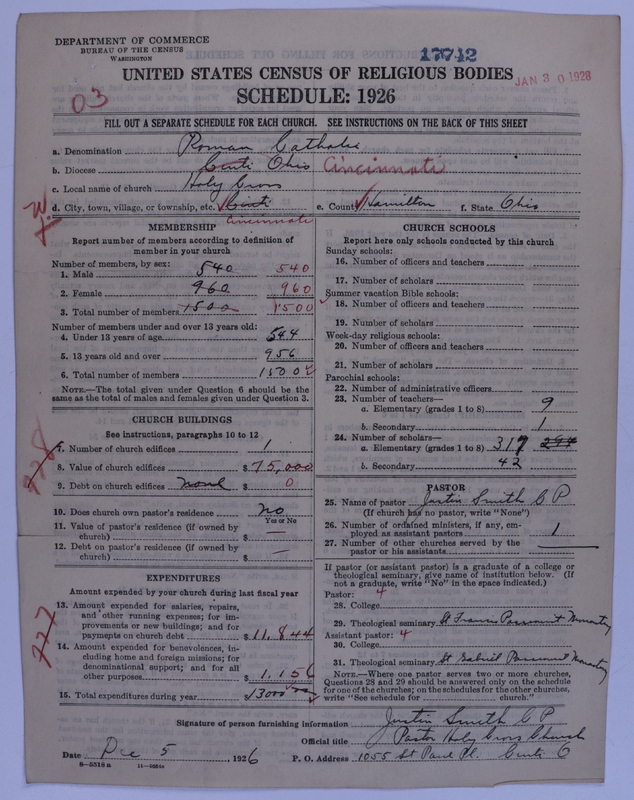 DEPARTMENT OF COMMERCE
BUREAU OF THE CENSUS
WASHINGTON
17742
JAN 30 1928
UNITED STATES CENSUS OF RELIGIOUS BODIES
03
SCHEDULE: 1926
FILL OUT A SEPARATE SCHEDULE FOR EACH CHURCH. SEE INSTRUCTIONS ON THE BACK OF THIS SHEET
a. Denomination Roman Catholic
b. Diocese Cinti Ohio Cincinnati
c. Local name of church Holy Cross
d. City, town, village, or township, etc. Cinti e. County Hamilton f. State Ohio
Cincinnati
MEMBERSHIP
Report number of members according to definition of
member in your church
Number of members, by sex:
1. Male 540 540
2. Female 960 960
3. Total number of members 1500 1500
Number of members under and over 13 years old:
4. Under 13 years of age 544
5. 13 years old and over 956
6. Total number of members 1500
NOTE.—The total given under Question 6 should be the
same as the total of males and females given under Question 3.
CHURCH BUILDINGS
See instructions, paragraphs 10 to 12
7. Number of church edifices 1
8. Value of church edifices $75,000
9. Debt on church edifices none $ 0
10. Does church own pastor's residence no
Yes or No
11. Value of pastor's residence (if owned by
church) $ —
12. Debt on pastor's residence (if owned by
church) $ —
EXPENDITURES
Amount expended by your church during last fiscal year
13. Amount expended for salaries, repairs,
and other running expenses; for im-
provements or new buildings; and for
payments on church debt $11,844
14. Amount expended for benevolences, in-
cluding home and foreign missions; for
denominational support; and for all
other purposes $1,156
15. Total expenditures during year $13000
CHURCH SCHOOLS
Report here only schools conducted by this church
Sunday schools:
16. Number of officers and teachers
17. Number of scholars
Summer vacation Bible schools:
18. Number of officers and teachers
19. Number of scholars
Week-day religious schools:
20. Number of officers and teachers
21. Number of scholars
Parochial schools:
22. Number of administrative officers
23. Number of teachers—
a. Elementary (grades 1 to 8) 9
b. Secondary 1
24. Number of scholars—
a. Elementary (grades 1 to 8) 317
b. Secondary 42
PASTOR
25. Name of pastor Justin Smith C P
(If church has no pastor, write "None")
26. Number of ordained ministers, if any, em-
ployed as assistant pastors 1
27. Number of other churches served by the
pastor or his assistants
If pastor (or assistant pastor) is a graduate of a college or
theological seminary, give name of institution below. (If
not a graduate, write "No" in the space indicated.)
Pastor: 4
28. College
29. Theological seminary St Francis Passionist Monastery
Assistant pastor: 4
30. College
31. Theological seminary St Gabriel Passionist Monastery
NOTE.—Where one pastor serves two or more churches,
Questions 28 and 29 should be answered only on the schedule
for one of the churches; on the schedules for the other churches,
write "See schedule for church."
Signature of person furnishing information Justin Smith C P
Official title Pastor Holy Cross Church
Date Dec 5, 1926 P. O. Address 1055 St Paul Pl. Cinti O
8-5516a